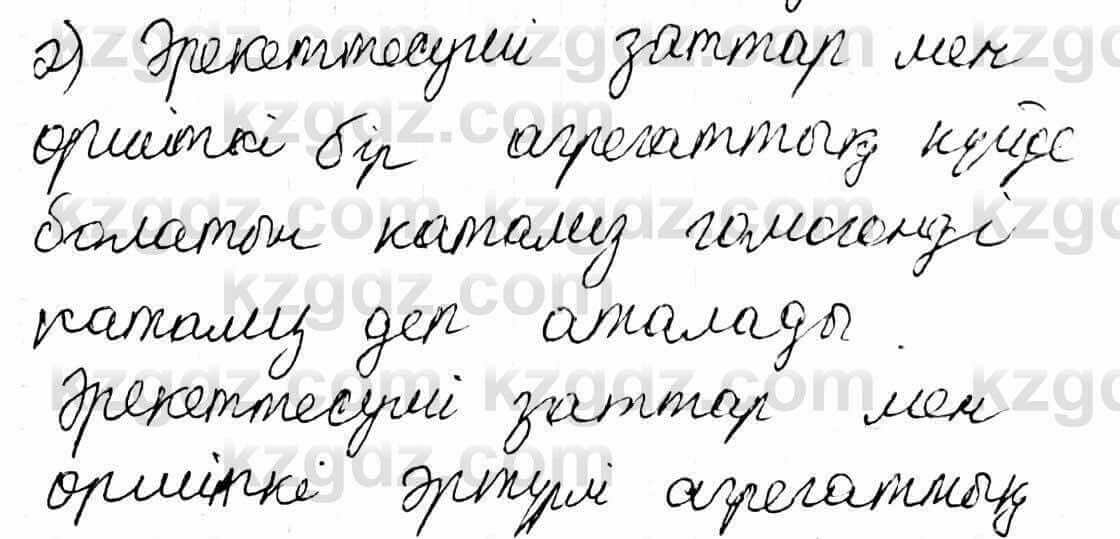 2) Әрекеттесуші заттар мен
өршіткі бір агрегаттық күйде
болатын катализ гомогенді
катализ деп аталады.
Әрекеттесуші заттар мен
өршіткі әртүрлі агрегаттық
kzgdz.com